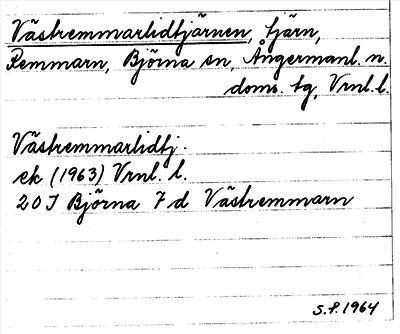 Västremmarlidtjärnen, tjärn,
Remmarn, Björna sn, Ångermanl. n.
doms. tg, Vrnl. l.
Västremmarlidtj.
ek (1963) Vrnl. l.
20 J Björna 7 d Västremmarn
S.F. 1964